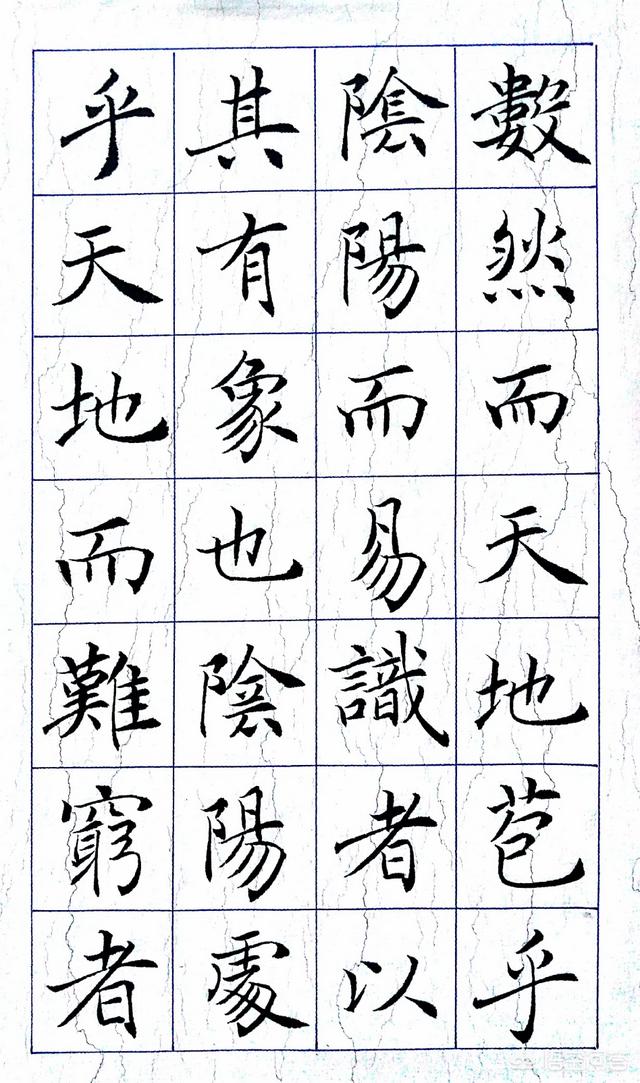 數然而天地苞乎
陰陽而易識者以
其有象也陰陽處
乎天地而難窮者